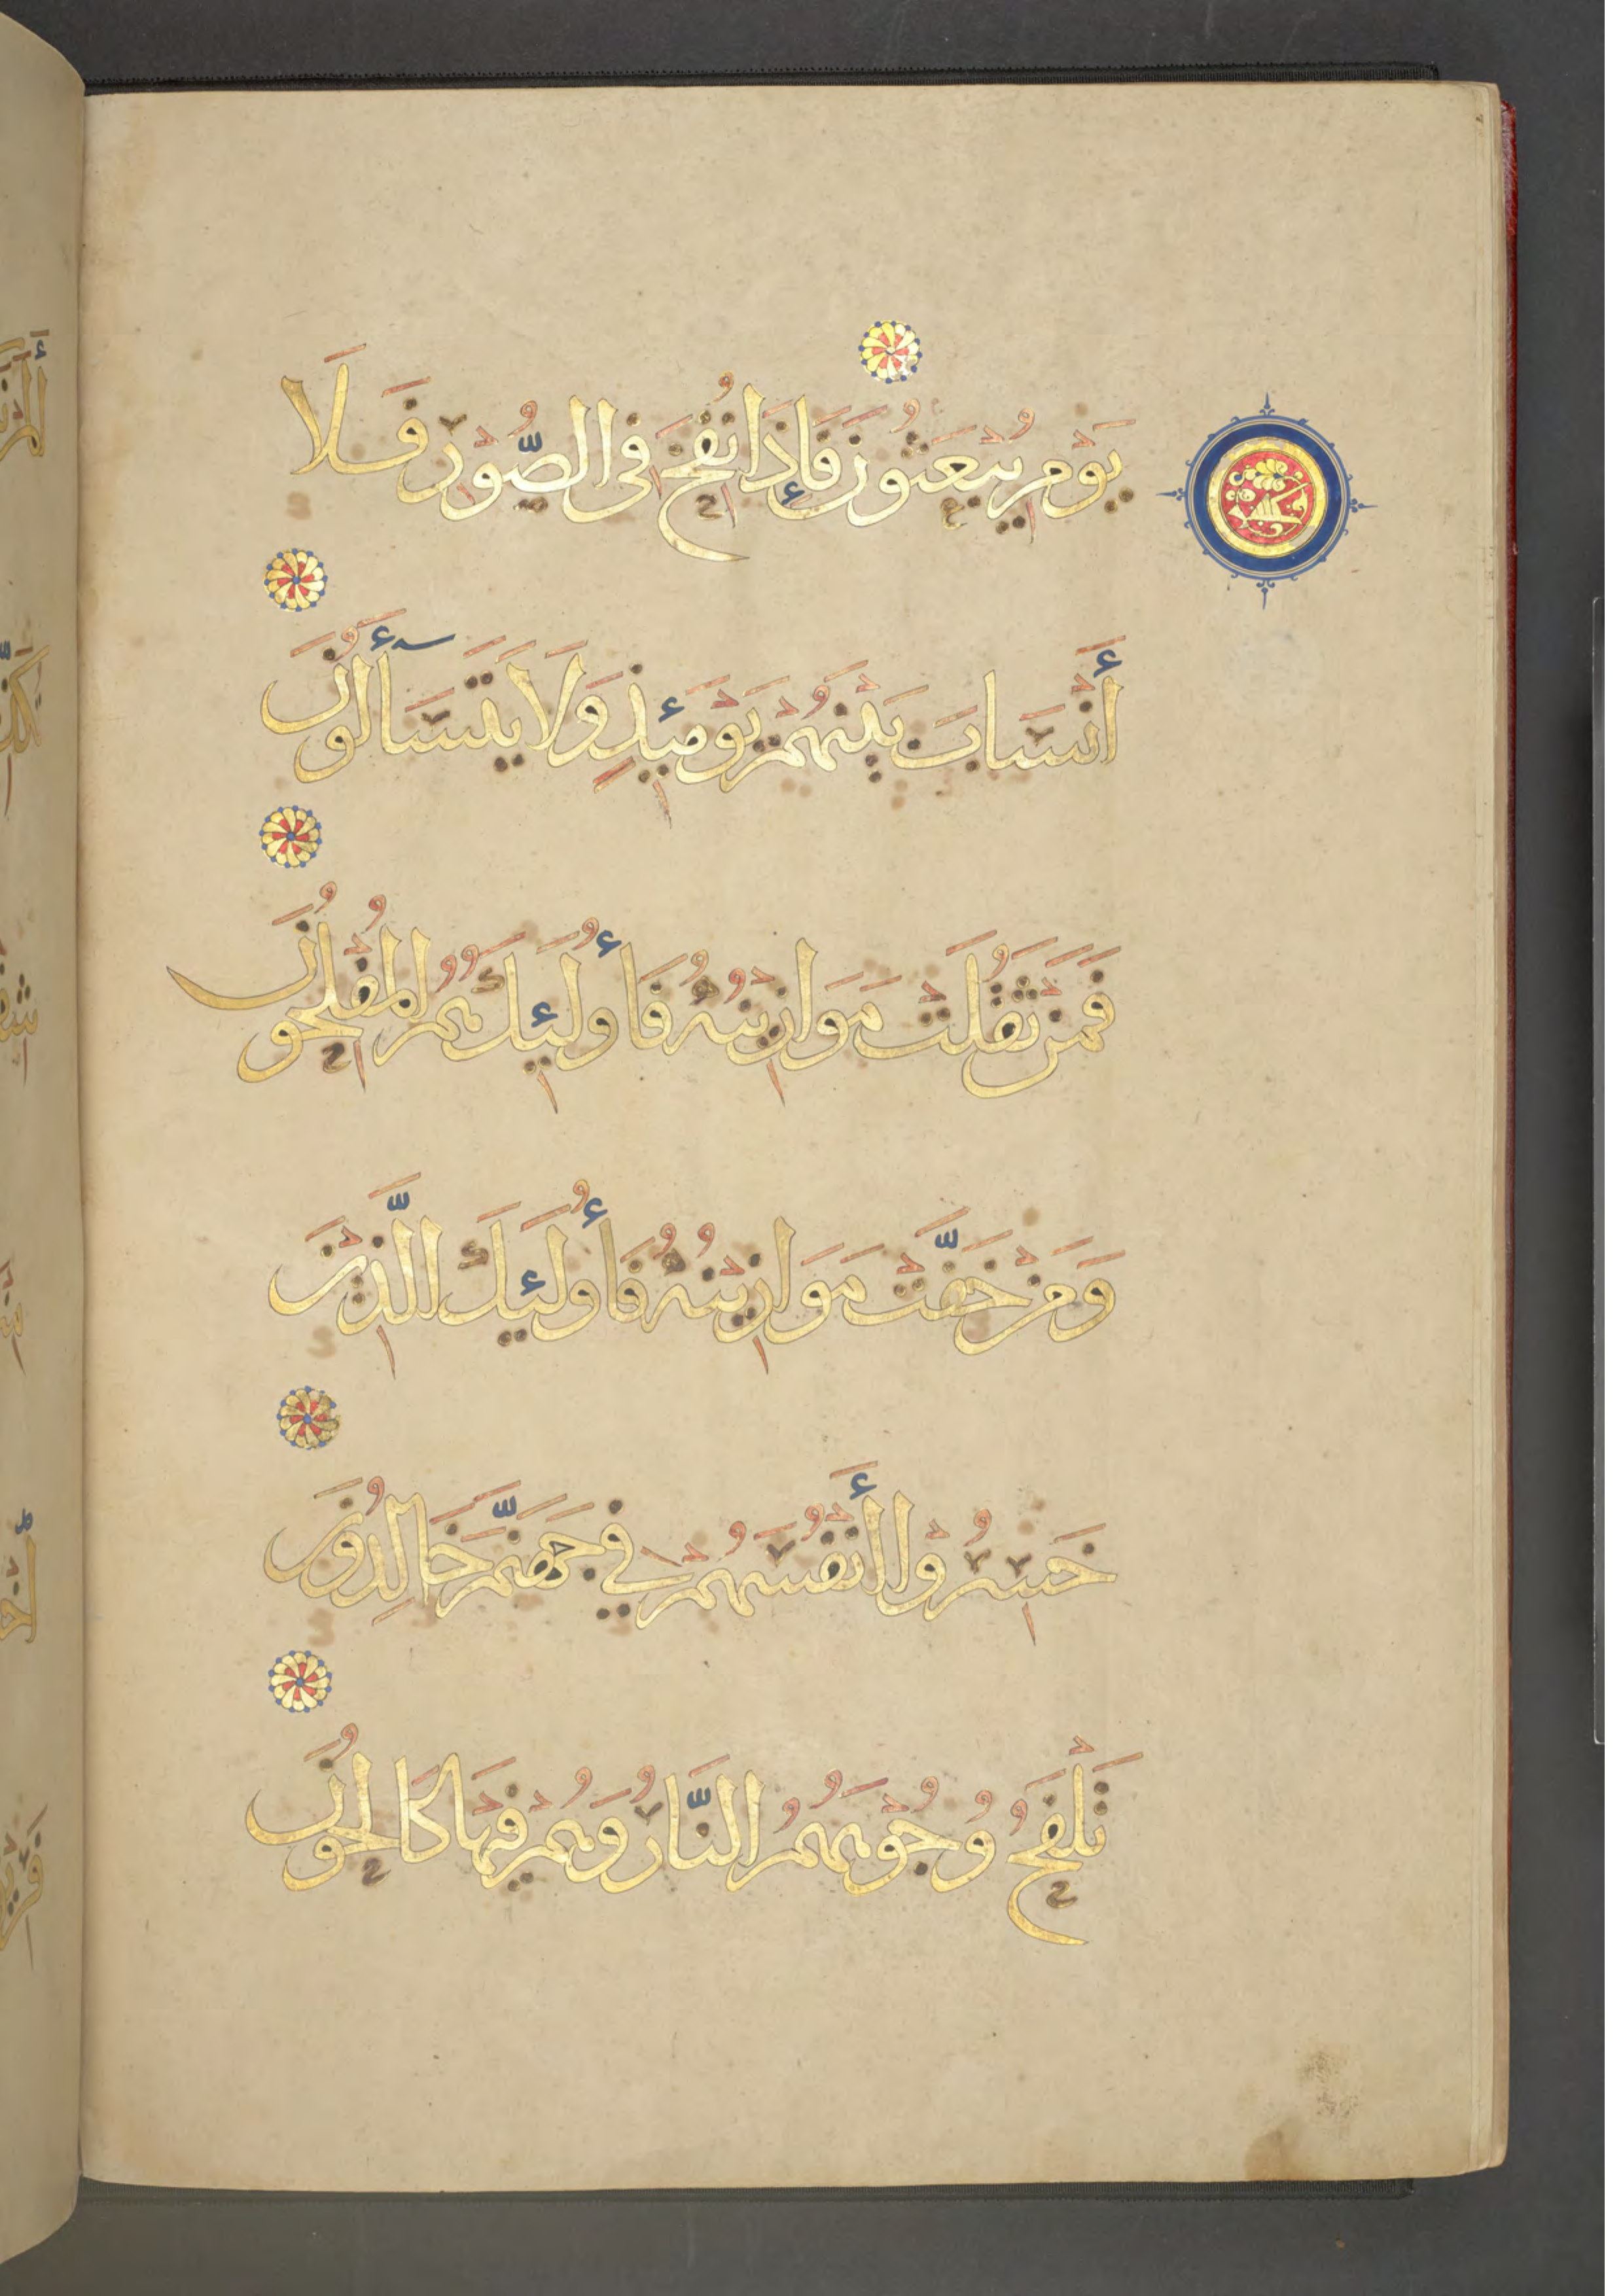 يَوْمِ يُبْعَثُونَ فَإِذَا نُفِخَ فِى الصُّوْرِ فَلَا
أَنْسَابَ بَيْنَهُمْ يَوْمَئِذٍ وَلَا يَتَسَآأَلُونَ
فَمَنْ ثَقُلَتْ مَوَازِيْنُهُ فَأُولَئِكَ هُمُ الْمُفْلِحُونَ
وَمَنْ خَفَّتْ مَوَازِيْنُهُ فَأُولَئِكَ الَّذِيْنَ
خَسِرُوْا أَنْفُسَهُمْ فِي جَهَنَّمَ خَالِدُونَ
تَلْفَحُ وُجُوْهَهُمُ النَّارُ وَهُمْ فِيْهَا كَالِحُونَ